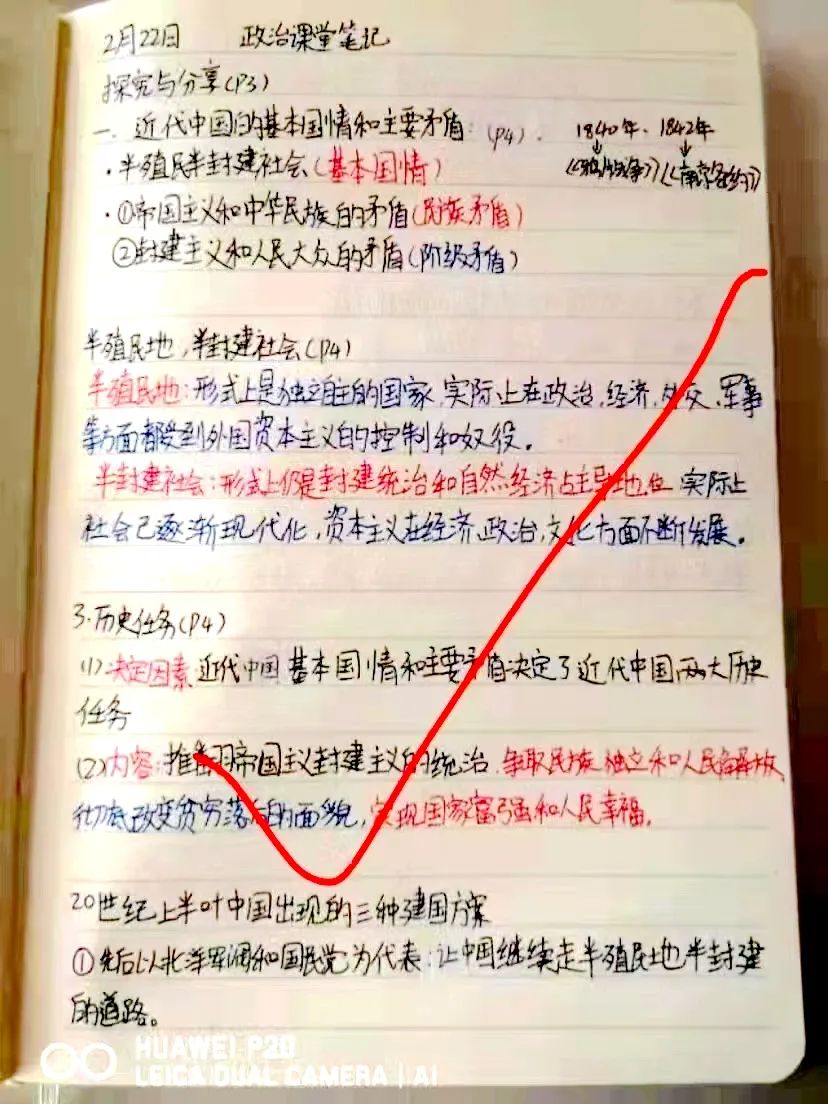 2月22日 政治课堂笔记
探究与分享(P3)
一、近代中国的基本国情和主要矛盾:(P4).
1840年、1842年
·半殖民半封建社会(基本国情)
《鸦片战争》《南京条约》
·①帝国主义和中华民族的矛盾(民族矛盾)
②封建主义和人民大众的矛盾(阶级矛盾)
半殖民地,半封建社会(P4)
半殖民地:形式上是独立自主的国家,实际上在政治,经济,外交,军事
等方面都受到外国资本主义的控制和奴役。
半封建社会:形式上仍是封建统治和自然经济占主导地位 实际上
社会已逐渐现代化,资本主义在经济,政治,文化方面不断发展。
3.历史任务(P4)
(1)决定因素 近代中国基本国情和主要矛盾决定了近代中国两大历史
任务
(2)内容:推翻帝国主义封建主义的统治,争取民族独立和人民解放,
彻底改变贫穷落后的面貌,实现国家富强和人民幸福。
20世纪上半叶中国出现的三种建国方案
①先后以北洋军阀和国民党为代表:让中国继续走半殖民地半封建
的道路。
HUAWEI P20
LEICA DUAL CAMERA | AI